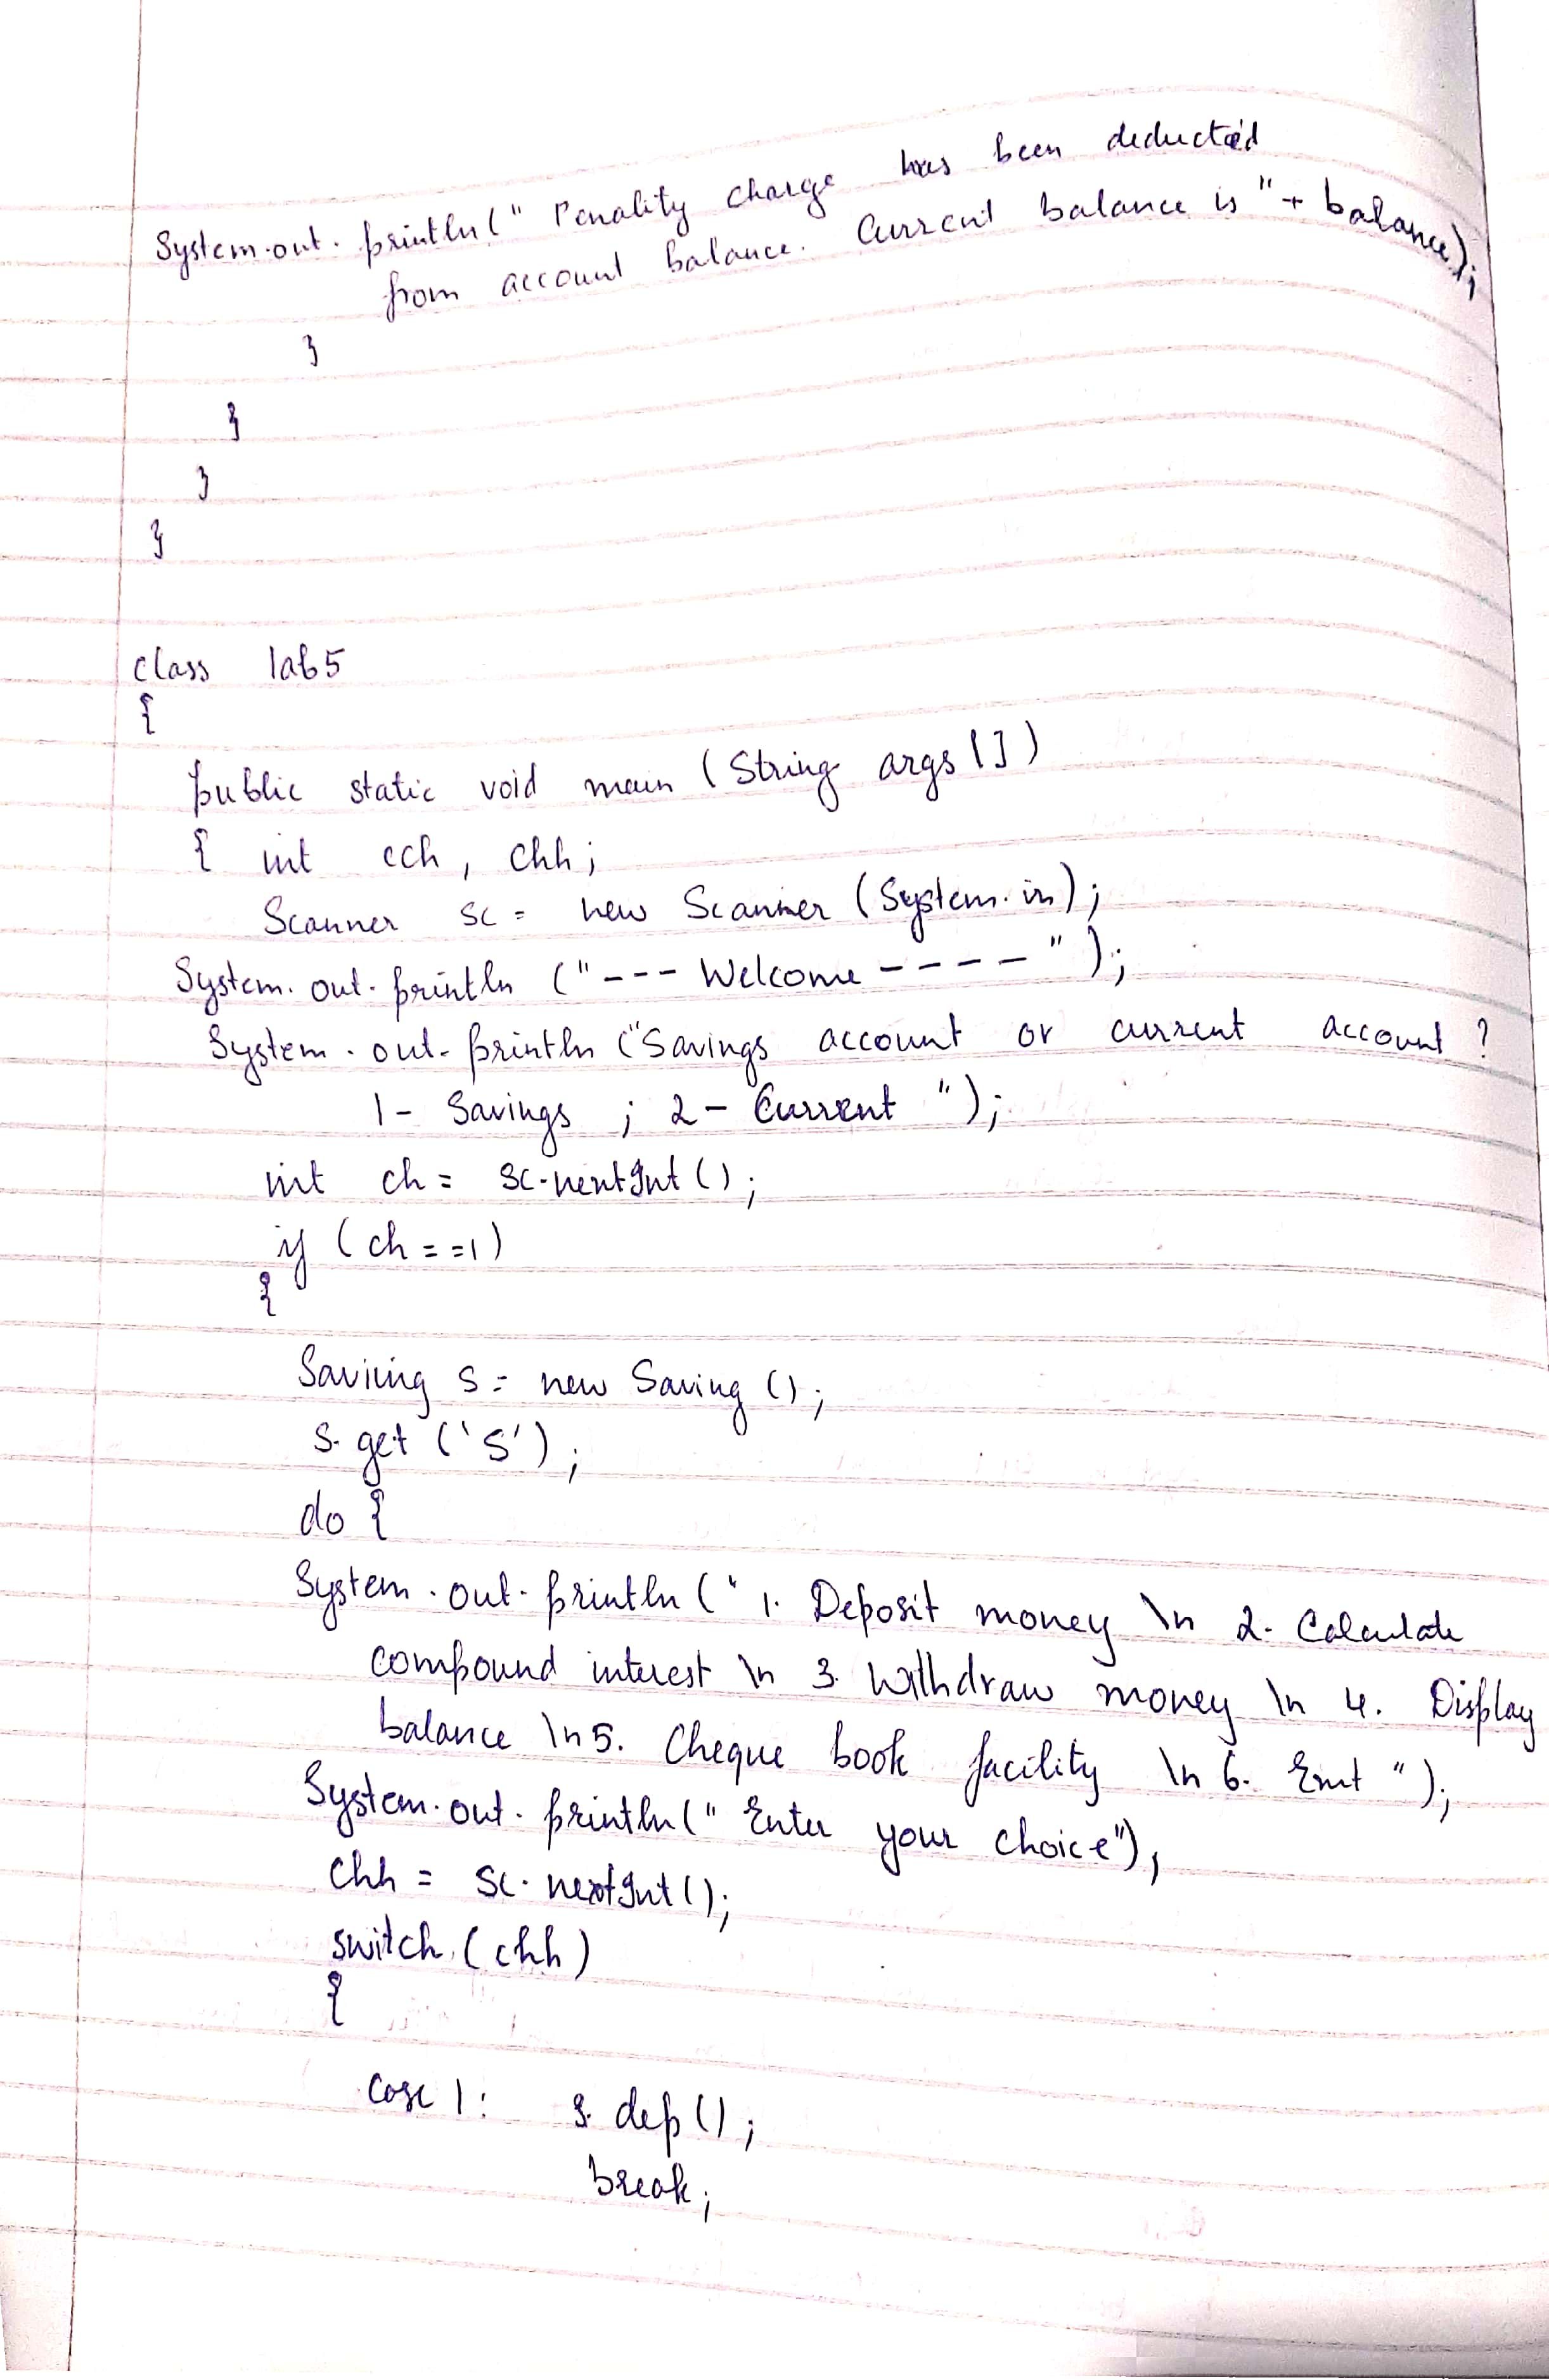 System.out.println(" Penality charge has been deducted
from account balance. Current balance is "+ balance);
}
}
}
}
class lab5
{
public static void main (String args[])
{ int cch, chh;
Scanner sc = new Scanner (System.in);
System.out.println ("--- Welcome ----");
System.out.println ("Savings account or current account ?
1- Savings ; 2- Current ");
int ch = sc.nextInt();
if (ch==1)
{
Saving s = new Saving ();
s.get ('S');
do {
System.out.println (" 1. Deposit money \n 2. Calculate
compound interest \n 3. Withdraw money \n 4. Display
balance \n5. Cheque book facility \n 6. Exit ");
System.out.println(" Enter your choice");
chh = sc.nextInt();
switch (chh)
{
case 1: s.dep();
break;